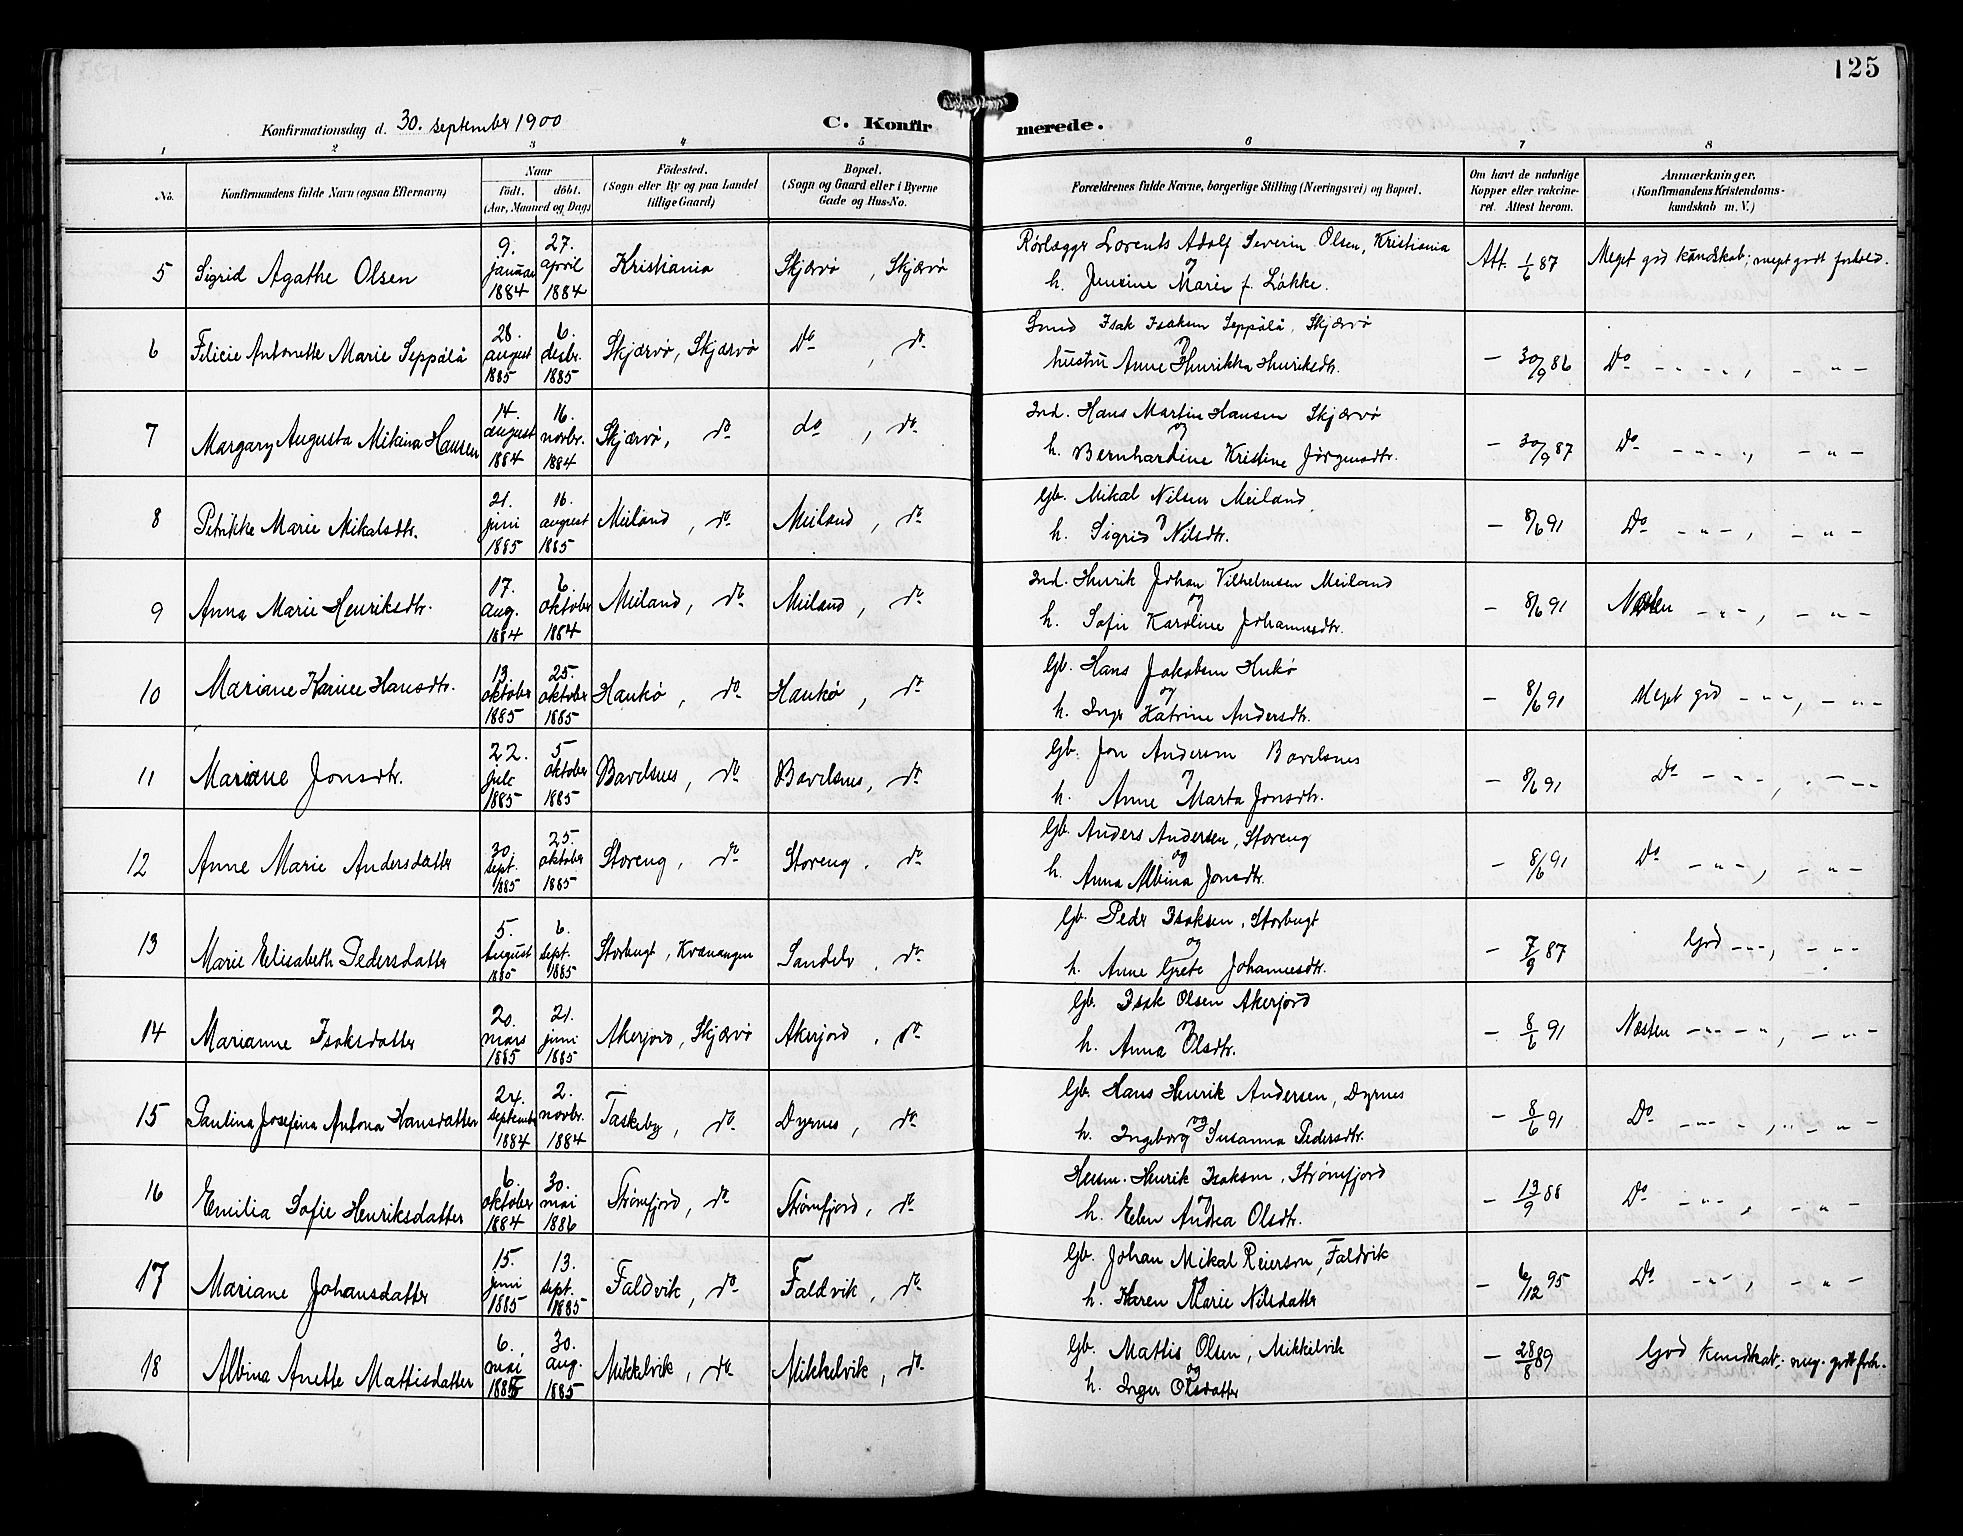 125
Konfirmationsdag d. 30. september 1900
C. Konfirmerede.
1 2 3 4 5 6 7 8
No. Konfirmandens fulde Navn (ogsaa Efternavn) Naar født. døbt. (Aar, Maaned og Dag) Fødested. (Sogn eller By og paa Landet tillige Gaard) Bopæl. (Sogn og Gaard eller i Byerne Gade og Hus-No. Forældrenes fulde Navne, borgerlige Stilling (Næringsvei) og Bopæl. Om havt de naturlige Kopper eller vakcineret. Attest herom. Anmærkninger. (Konfirmandens Kristendomskundskab m. V.)
5 Sigrid Agathe Olsen 9. januar 1884 27. april 1884 Kristiania Skjærvø, Skjærvø Rørlægger Lorents Adolf Severin Olsen, Kristiania og h. Jensine Marie f. Løkke. Att. 1/6 87 Meget god kundskab; meget godt forhold.
6 Felicie Antonette Marie Seppälä 28. august 1885 6. desbr. 1885 Skjærvø, Skjærvø Do, do Smed Isak Isaksen Seppälä, Skjærvø og hustru Anne Henrikka Henriksdtr. - 30/9 86 Do - " - , - " -
7 Margary Augusta Mikina Hansen 14. august 1884 16. novbr. 1884 Skjærvø, do do, do Ind. Hans Martin Hansen Skjærvø og h. Bernhardine Kristine Jørgensdtr. - 30/9 87 Do - " - , - " -
8 Petrikke Marie Mikalsdtr. 21. juni 1885 16. august 1885 Meiland, do Meiland, do Gb. Mikal Nilsen Meiland, og h. Sigrid Nilsdtr. - 8/6 91 Do - " - , - " -
9 Anna Marie Henriksdtr. 17. aug. 1884 6. oktober 1884 Meiland, do Meiland, do Ind. Henrik Johan Vilhelmsen Meiland og h. Sofie Karoline Johannesdtr. - 8/6 91 Næsten - " - , - " -
10 Mariane Karine Hansdtr. 13. oktober 1885 25. oktober 1885 Haukø, do Haukø, do Gb. Hans Jakobsen Hukø og h. Inger Katrine Andersdtr. - 8/6 91 Meget god - " - , - " -
11 Mariane Jonsdtr. 22. juli 1885 5 oktober 1885 Bavelsnes, do Bavelsnes, do Gb. Jon Andersen Bavelsnes og h. Anne Marta Jonsdtr. - 8/6 91 Do - " - , - " -
12 Anne Marie Andersdatter 30. sept. 1885 25. oktober 1885 Storeng, do Storeng, do Gb. Anders Andersen, Storeng og h. Anna Albina Jonsdtr. - 8/6 91 Do - " - , - " -
13 Marie Elisabeth Pedersdatter 5. august 1885 6. sept. 1885 Storbugt, Kvænangen Sandelv, do Gb. Peder Isaksen, Storbugt og h. Anne Grete Johannesdtr. - 7/9 87 God - " - , - " -
14 Marianne Isaksdatter 20. mars 1885 21. juni 1885 Akerjord, Skjærvø Akerjord, do Gb. Isak Olsen Akerjord og h. Anna Olsdtr. - 8/6 91 Næsten - " - " - , - " -
15 Paulina Josefina Antona Hansdatter 24. september 1884 2. novbr. 1884 Taskeby, do Dyrnes, do Gb. Hans Henrik Andersen, Dyrnes og h. Ingeborg Susanna Pedersdtr. - 8/6 91 Do - " - , - " -
16 Emilia Sofie Henriksdatter 6. oktober 1884 30. mai 1886 Strømfjord, do Strømfjord, do Husm. Henrik Isaksen, Strømfjord og h. Elen Andrea Olsdtr. - 13/9 88 Do - " - , - " -
17 Mariane Johansdatter 15. juni 1885 13. sept. 1885 Faldvik, do Faldvik, do Gb. Johan Mikal Reierson, Faldvik og h. Karen Marie Nilsdatter - 6/12 95 Do - " - , - " -
18 Albina Anette Mattisdatter 6. mai 1885 30. aug. 1885 Mikkelvik, do Mikkelvik, do Gb. Mattis Olsen, Mikkilvik og h. Inger Olsdatter - 28/8 89 God kundskab; meg. godt forh.